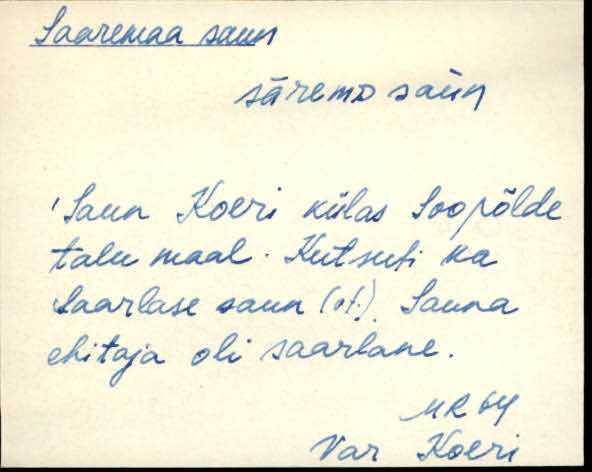 Saaremaa saun
säremɒ saùn
'Saun Koeri külas Soopõlde
talu maal. Kutsuti ka
Saarlase saun (vt.). Sauna
ehitaja oli saarlane.
MR 64
Var Koeri